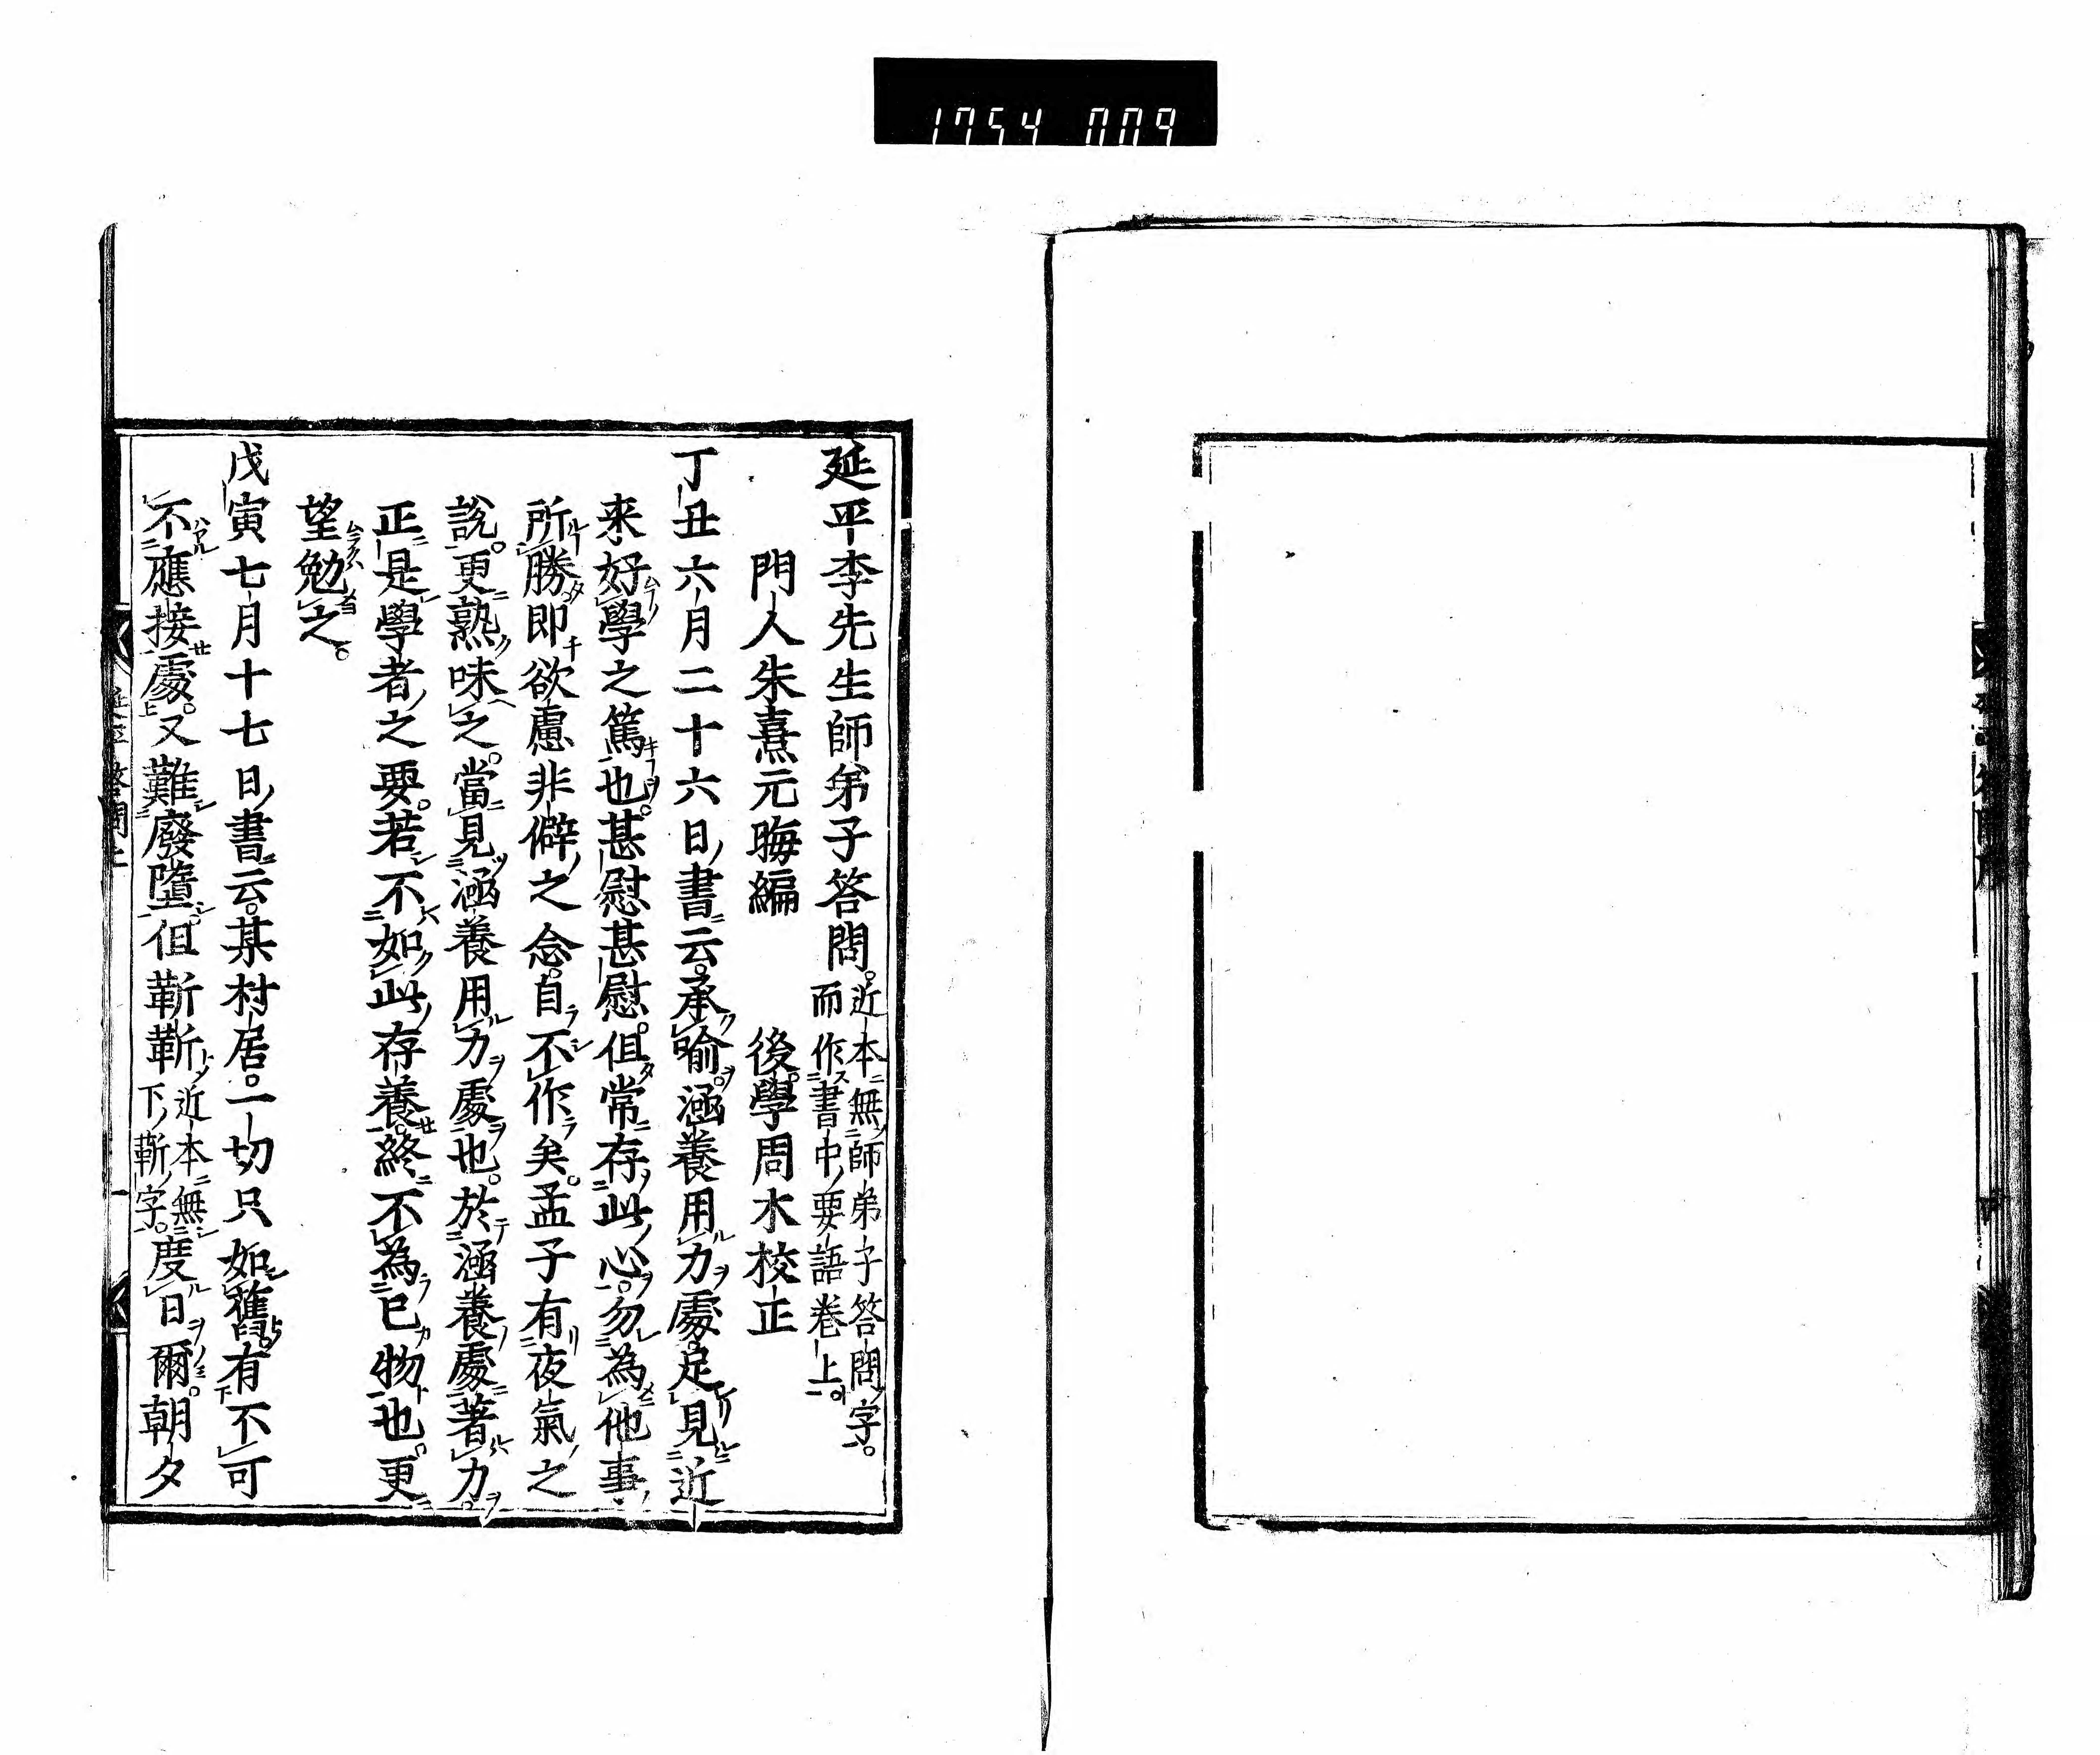 1754 009
延平李先生師弟子答問。近本無師弟子答問字。而作書中要語卷上。
門人朱熹元晦編　後學周木校正
丁丑六月二十六日書云。承喻。涵養用力處足見近
来好學之篤也。甚慰甚慰。但常存此心。勿為他事
所勝即欲慮非僻之念。自不作矣。孟子有夜氣之
説。更熟味之。當見涵養用力處也。於涵養處著力。
正是學者之要。若不如此存養。終不為已物也。更
望勉之。
戊寅七月十七日書云。某村居。一切只如舊。有不可
不應接處。又難廢墮。但靳靳近本無下靳字。度日爾。朝夕